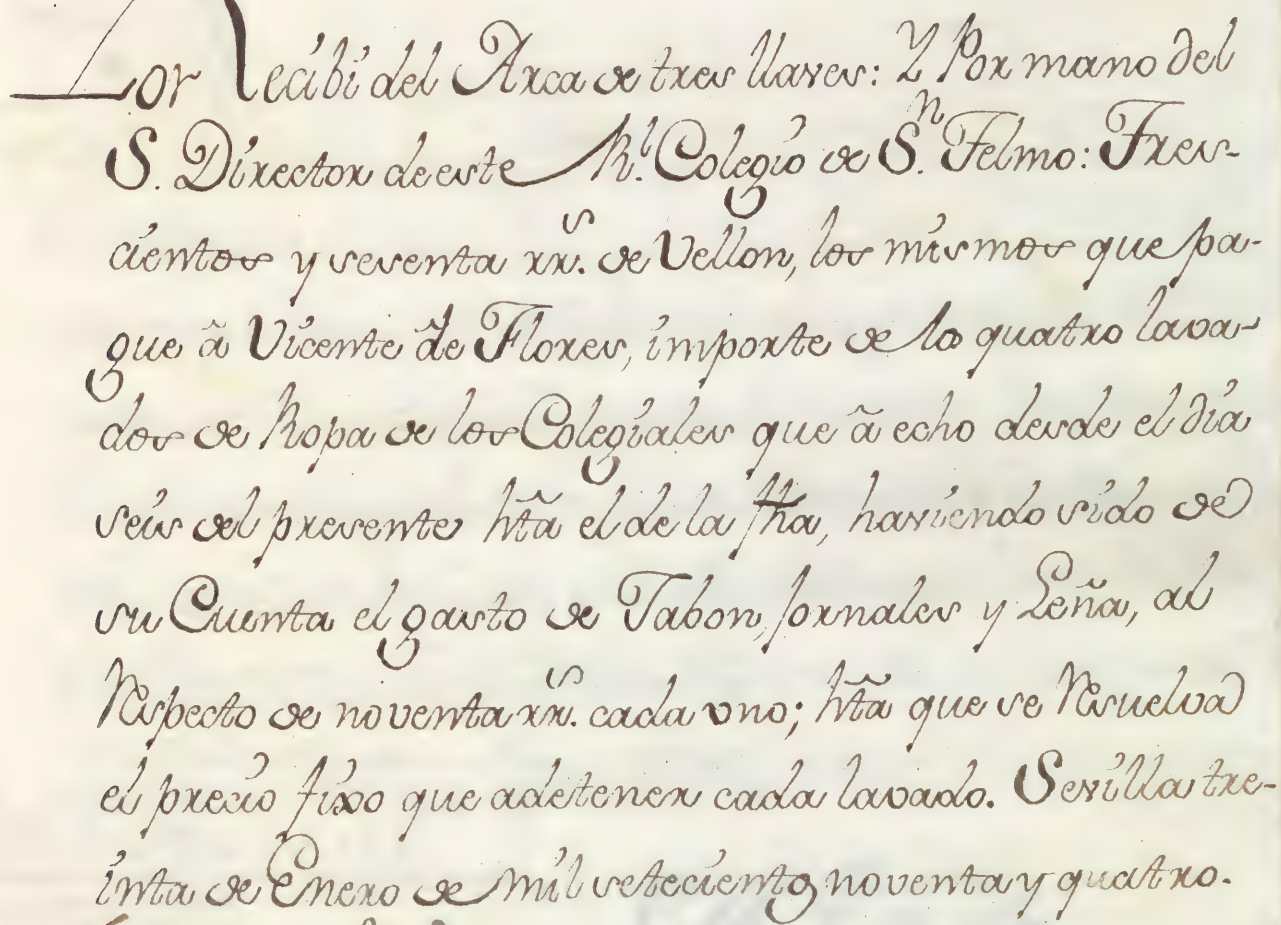 Por Recibi del Arca de tres llaves: Y Por mano del
S. Director de este Rl. Colegio de Sn. Telmo: Tres-
cientos y sesenta rrs. de Vellon, los mismos que pa-
gue â Vicente de Flores, importe de lo quatro lava-
dos de Ropa de los Colegiales que â echo desde el dia
seis del presente htã el de la fha, haviendo sido de
su Cuenta el gasto de Jabon, Jornales y Leña, al
Respecto de noventa rrs. cada vno; htã que se Resuelva
el precio fixo que a de tener cada lavado. Sevilla tre-
inta de Enero de mil setecientos noventa y quatro.